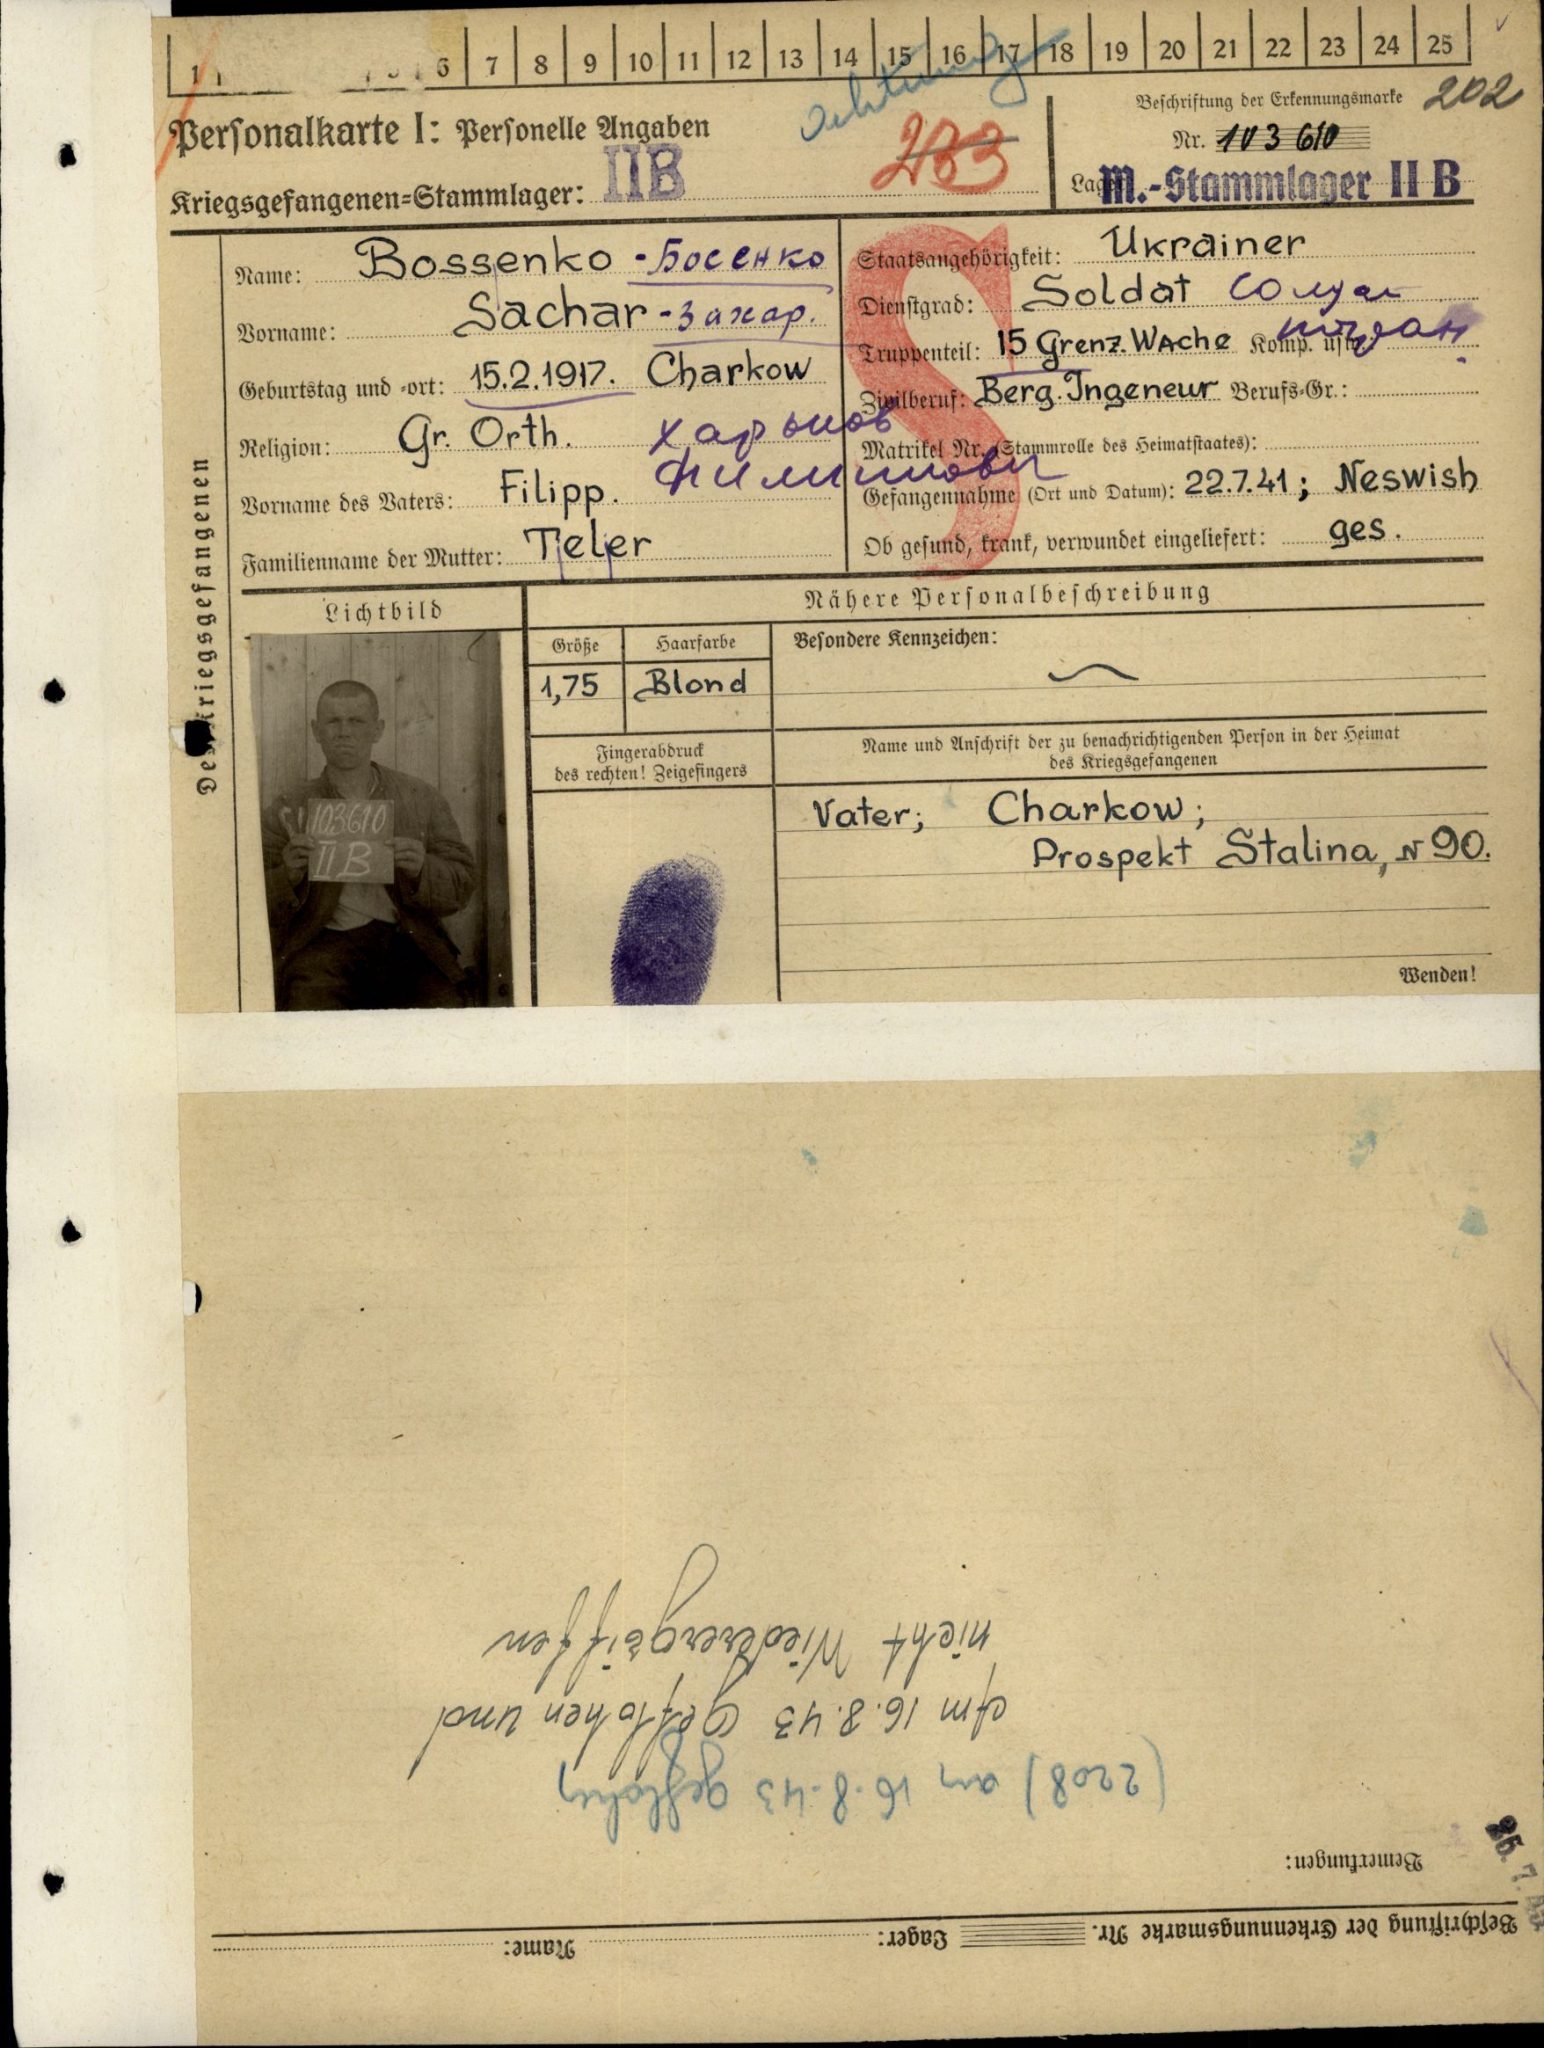 1 5 6 7 8 9 10 11 12 13 14 15 16 17 18 19 20 21 22 23 24 25
Achtung
Personalkarte I: Personelle Angaben
Kriegsgefangenen-Stammlager: IIB
233
Beschriftung der Erkennungsmarke 202
Nr. 103610
Lager: M.-Stammlager II B
Des Kriegsgefangenen
Name: Bossenko - Босенко
Vorname: Sachar - Захар.
Geburtstag und -ort: 15.2.1917. Charkow
Religion: Gr. Orth. Харьков
Vorname des Vaters: Filipp. Филиппович
Familienname der Mutter: Teler
S
Staatsangehörigkeit: Ukrainer
Dienstgrad: Soldat Солдат
Truppenteil: 15 Grenz. Wache Komp. usw.:
Zivilberuf: Berg. Ingeneur Berufs-Gr.:
Matrikel Nr. (Stammrolle des Heimatstaates):
Gefangennahme (Ort und Datum): 22.7.41; Neswish
Ob gesund, krank, verwundet eingeliefert: ges.
Lichtbild
103610
II B
Nähere Personalbeschreibung
Größe Haarfarbe Besondere Kennzeichen:
1,75 Blond
Fingerabdruck
des rechten! Zeigefingers
Name und Anschrift der zu benachrichtigenden Person in der Heimat
des Kriegsgefangenen
Vater; Charkow;
Prospekt Stalina, N 90.
Wenden!
Beschriftung der Erkennungsmarke Nr. Lager: Name:
Bemerkungen:
25. 7.
(2208) am 16.8.43 geflohen
Am 16.8.43 Geflohen und
nicht Wiederergriffen